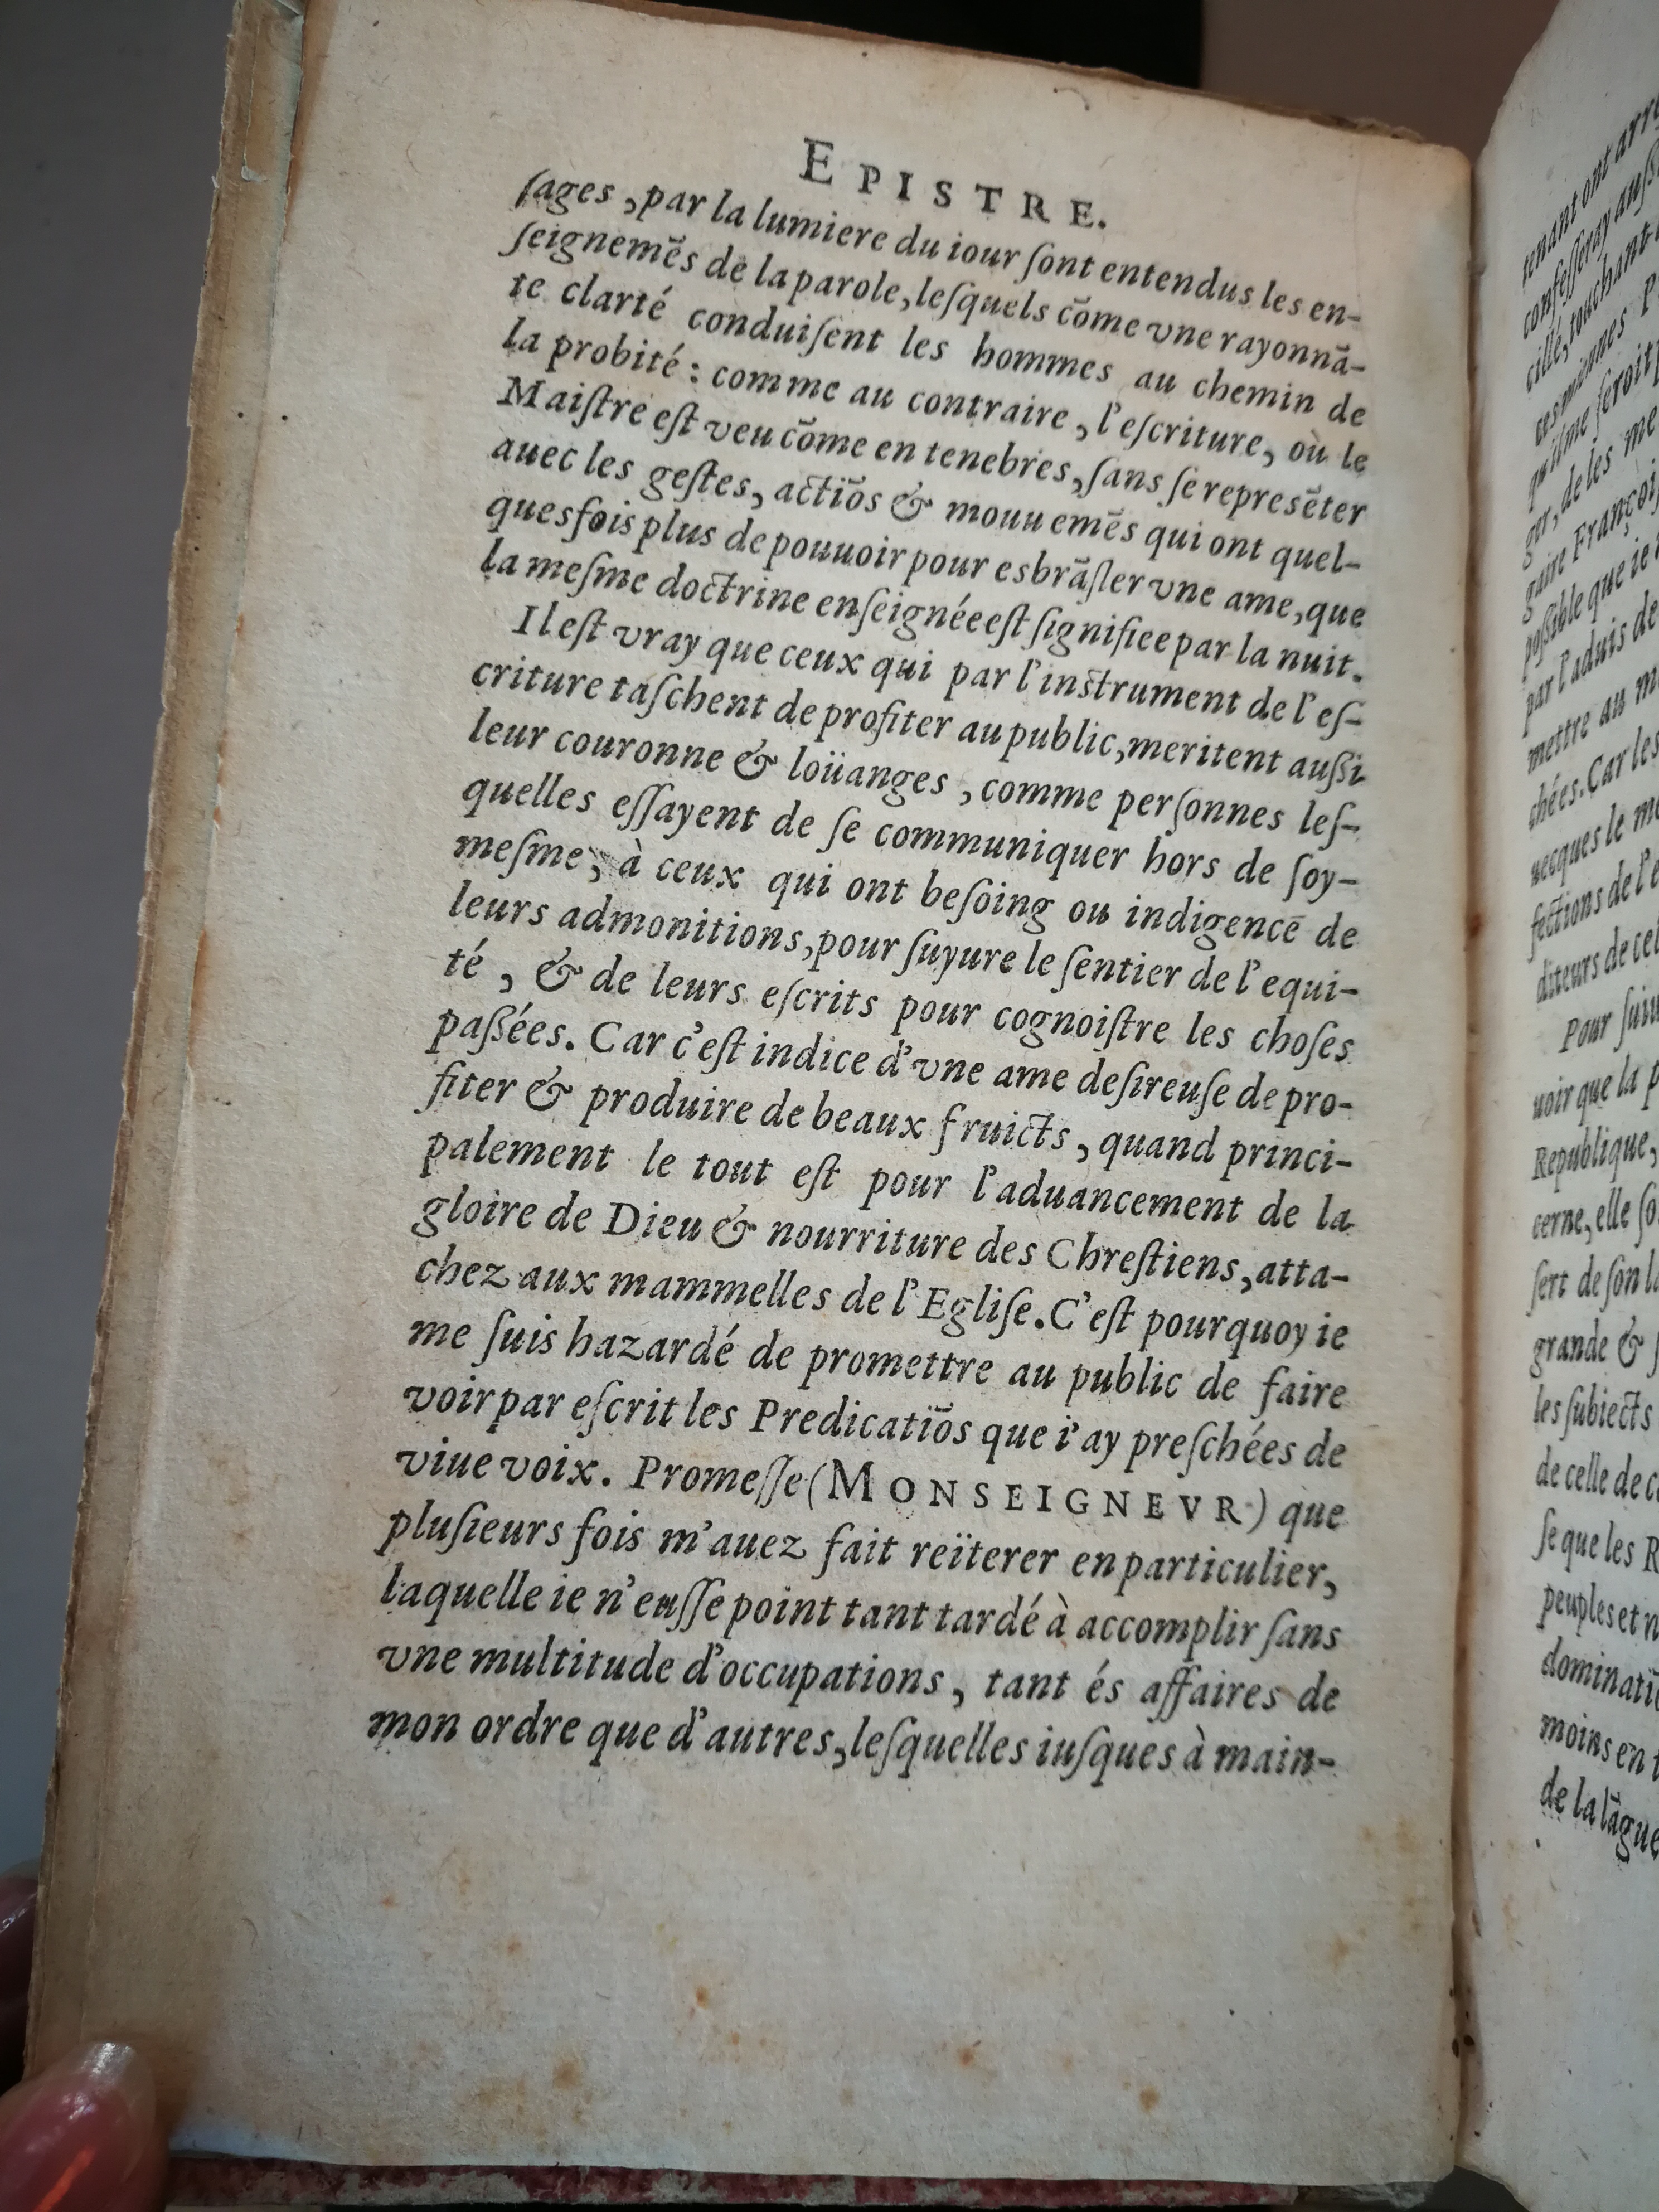 EPISTRE.
ſages, par la lumiere du iour ſont entendus les en-
ſeignemẽs de la parole, leſquels cõme vne rayonnã-
te clarté conduiſent les hommes au chemin de
la probité : comme au contraire, l'eſcriture, où le
Maiſtre eſt veu cõme en tenebres, ſans ſe repreſẽter
auec les geſtes, actiõs & mouuemẽs qui ont quel-
quesfois plus de pouuoir pour esbrãſler vne ame, que
la meſme doctrine enſeignée eſt ſignifiee par la nuit.
Il eſt vray que ceux qui par l'inſtrument de l'eſ-
criture taſchent de profiter au public, meritent außi
leur couronne & loüanges, comme perſonnes leſ-
quelles eſſayent de ſe communiquer hors de ſoy-
meſme, à ceux qui ont beſoing ou indigence de
leurs admonitions, pour ſuyure le ſentier de l'equi-
té, & de leurs eſcrits pour cognoiſtre les choſes
paßées. Car c'eſt indice d'vne ame deſireuſe de pro-
fiter & produire de beaux fruicts, quand princi-
palement le tout eſt pour l'aduancement de la
gloire de Dieu & nourriture des Chreſtiens, atta-
chez aux mammelles de l'Egliſe. C'eſt pourquoy ie
me ſuis hazardé de promettre au public de faire
voir par eſcrit les Predicatiõs que i'ay preſchées de
viue voix. Promeſſe (MONSEIGNEVR) que
pluſieurs fois m'auez fait reïterer en particulier,
laquelle ie n'euſſe point tant tardé à accomplir ſans
vne multitude d'occupations, tant és affaires de
mon ordre que d'autres, leſquelles iuſques à main-
tenant ont
confeſſeray auſſi
cillé, touchant
ces miennes
qu'il me ſeroit
ger, de les
gaire François
poßible que ie
par l'aduis de
mettre au
chées. Car les
uecques le
fections de l'e
diteurs de cel
Pour ſuiu
uoir que la p
Republique,
cerne, elle ſo
ſert de ſon la
grande &
les ſubiects
de celle de c
ſe que les R
peuples et n
dominatiõ
moins en t
de la lãgue